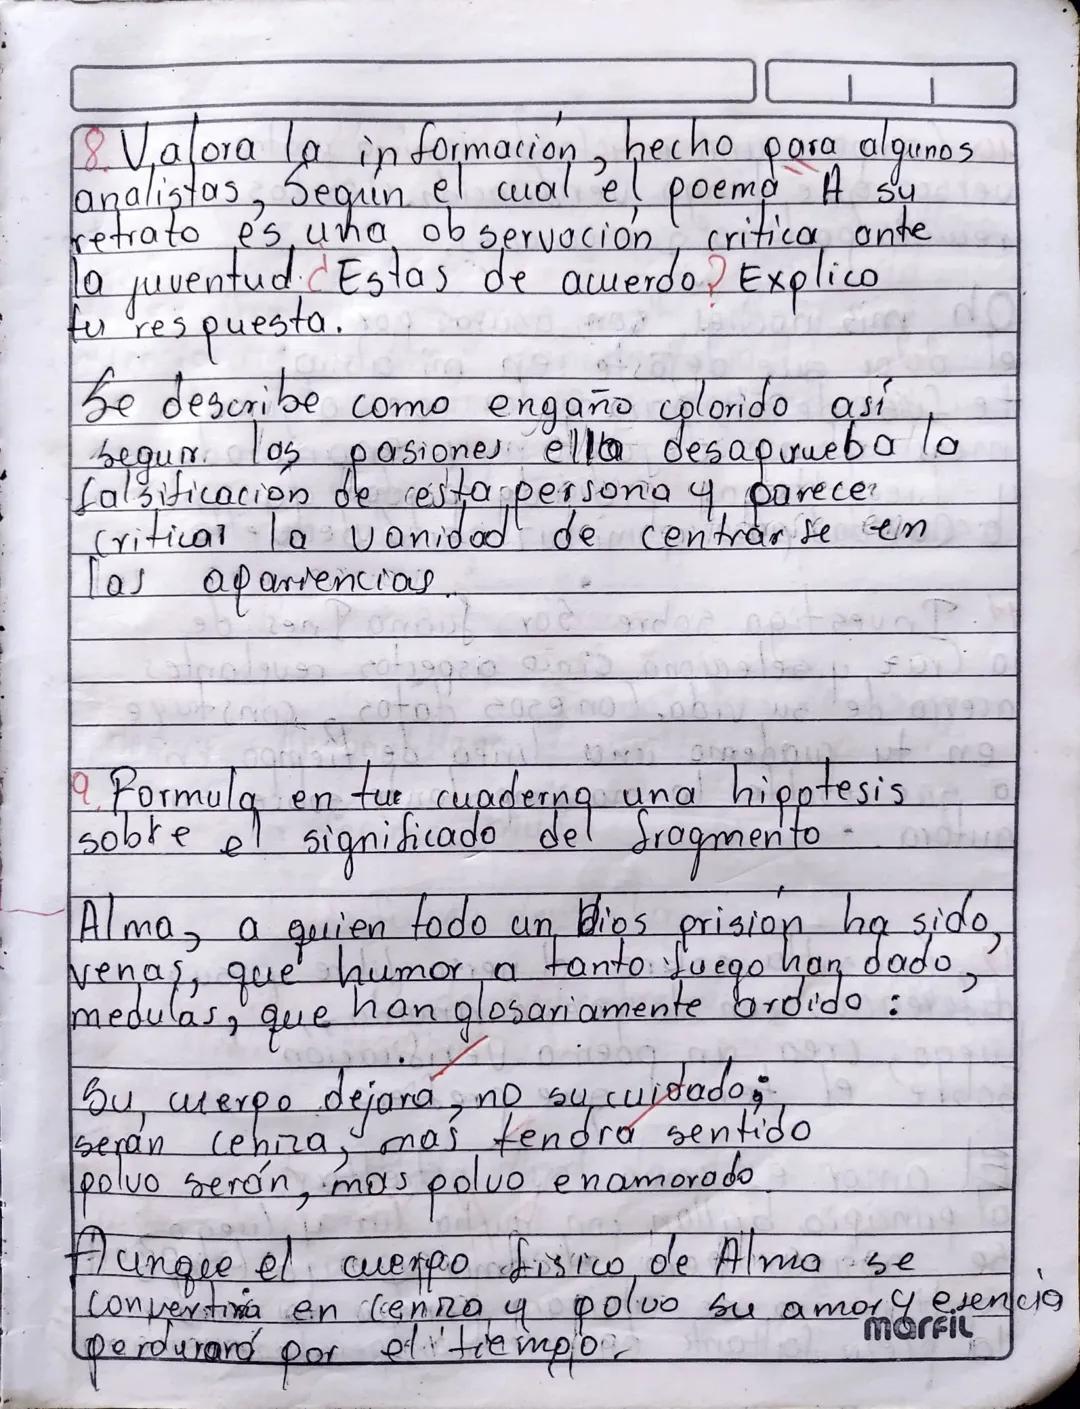 8. Valora la información, hecho para algunos
analistas, Según el cual el poema A su
retrato es una observación critica ante
la juventud. ¿Estas de acuerdo? Explico
tu respuesta.
Se describe como engaño colorido así
segun los pasiones ella desaprueba la
falsificación de esta persona y parece
critical la vanidad de centrarse en
las apariencias.
9. Formula en tue cuaderno una hipotesis
sobre el significado del fragmento.
Alma, a quien todo un Dios prisión ha sido,
venas, que humor a tanto fuego han dado,
medulas, que han glosariamente ordido:
Su cuerpo dejará, no su cuidado;
serán ceniza, mas tendrá sentido
polvo serán, mas polvo enamorado.
Aunque el cuerpo fisico de Alma se
convertirá en ceniza y polvo su amor y esencia
marfil
perdurará por el tiempo.